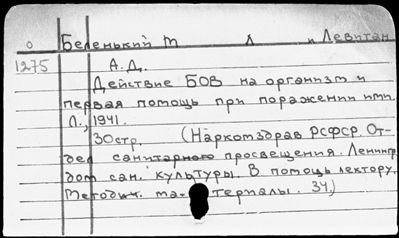 о Беленький М Л и Левитан
1275 А.Д.
Действие БОВ на организм и
первая помощь при поражении ими.
Л., 1941.
30стр. (Наркомздрав РСФСР. От-
дел санитарного просвещения. Ленингр
дом сан. культуры. В помощь лектору.
Методич. ма- териалы. 34)